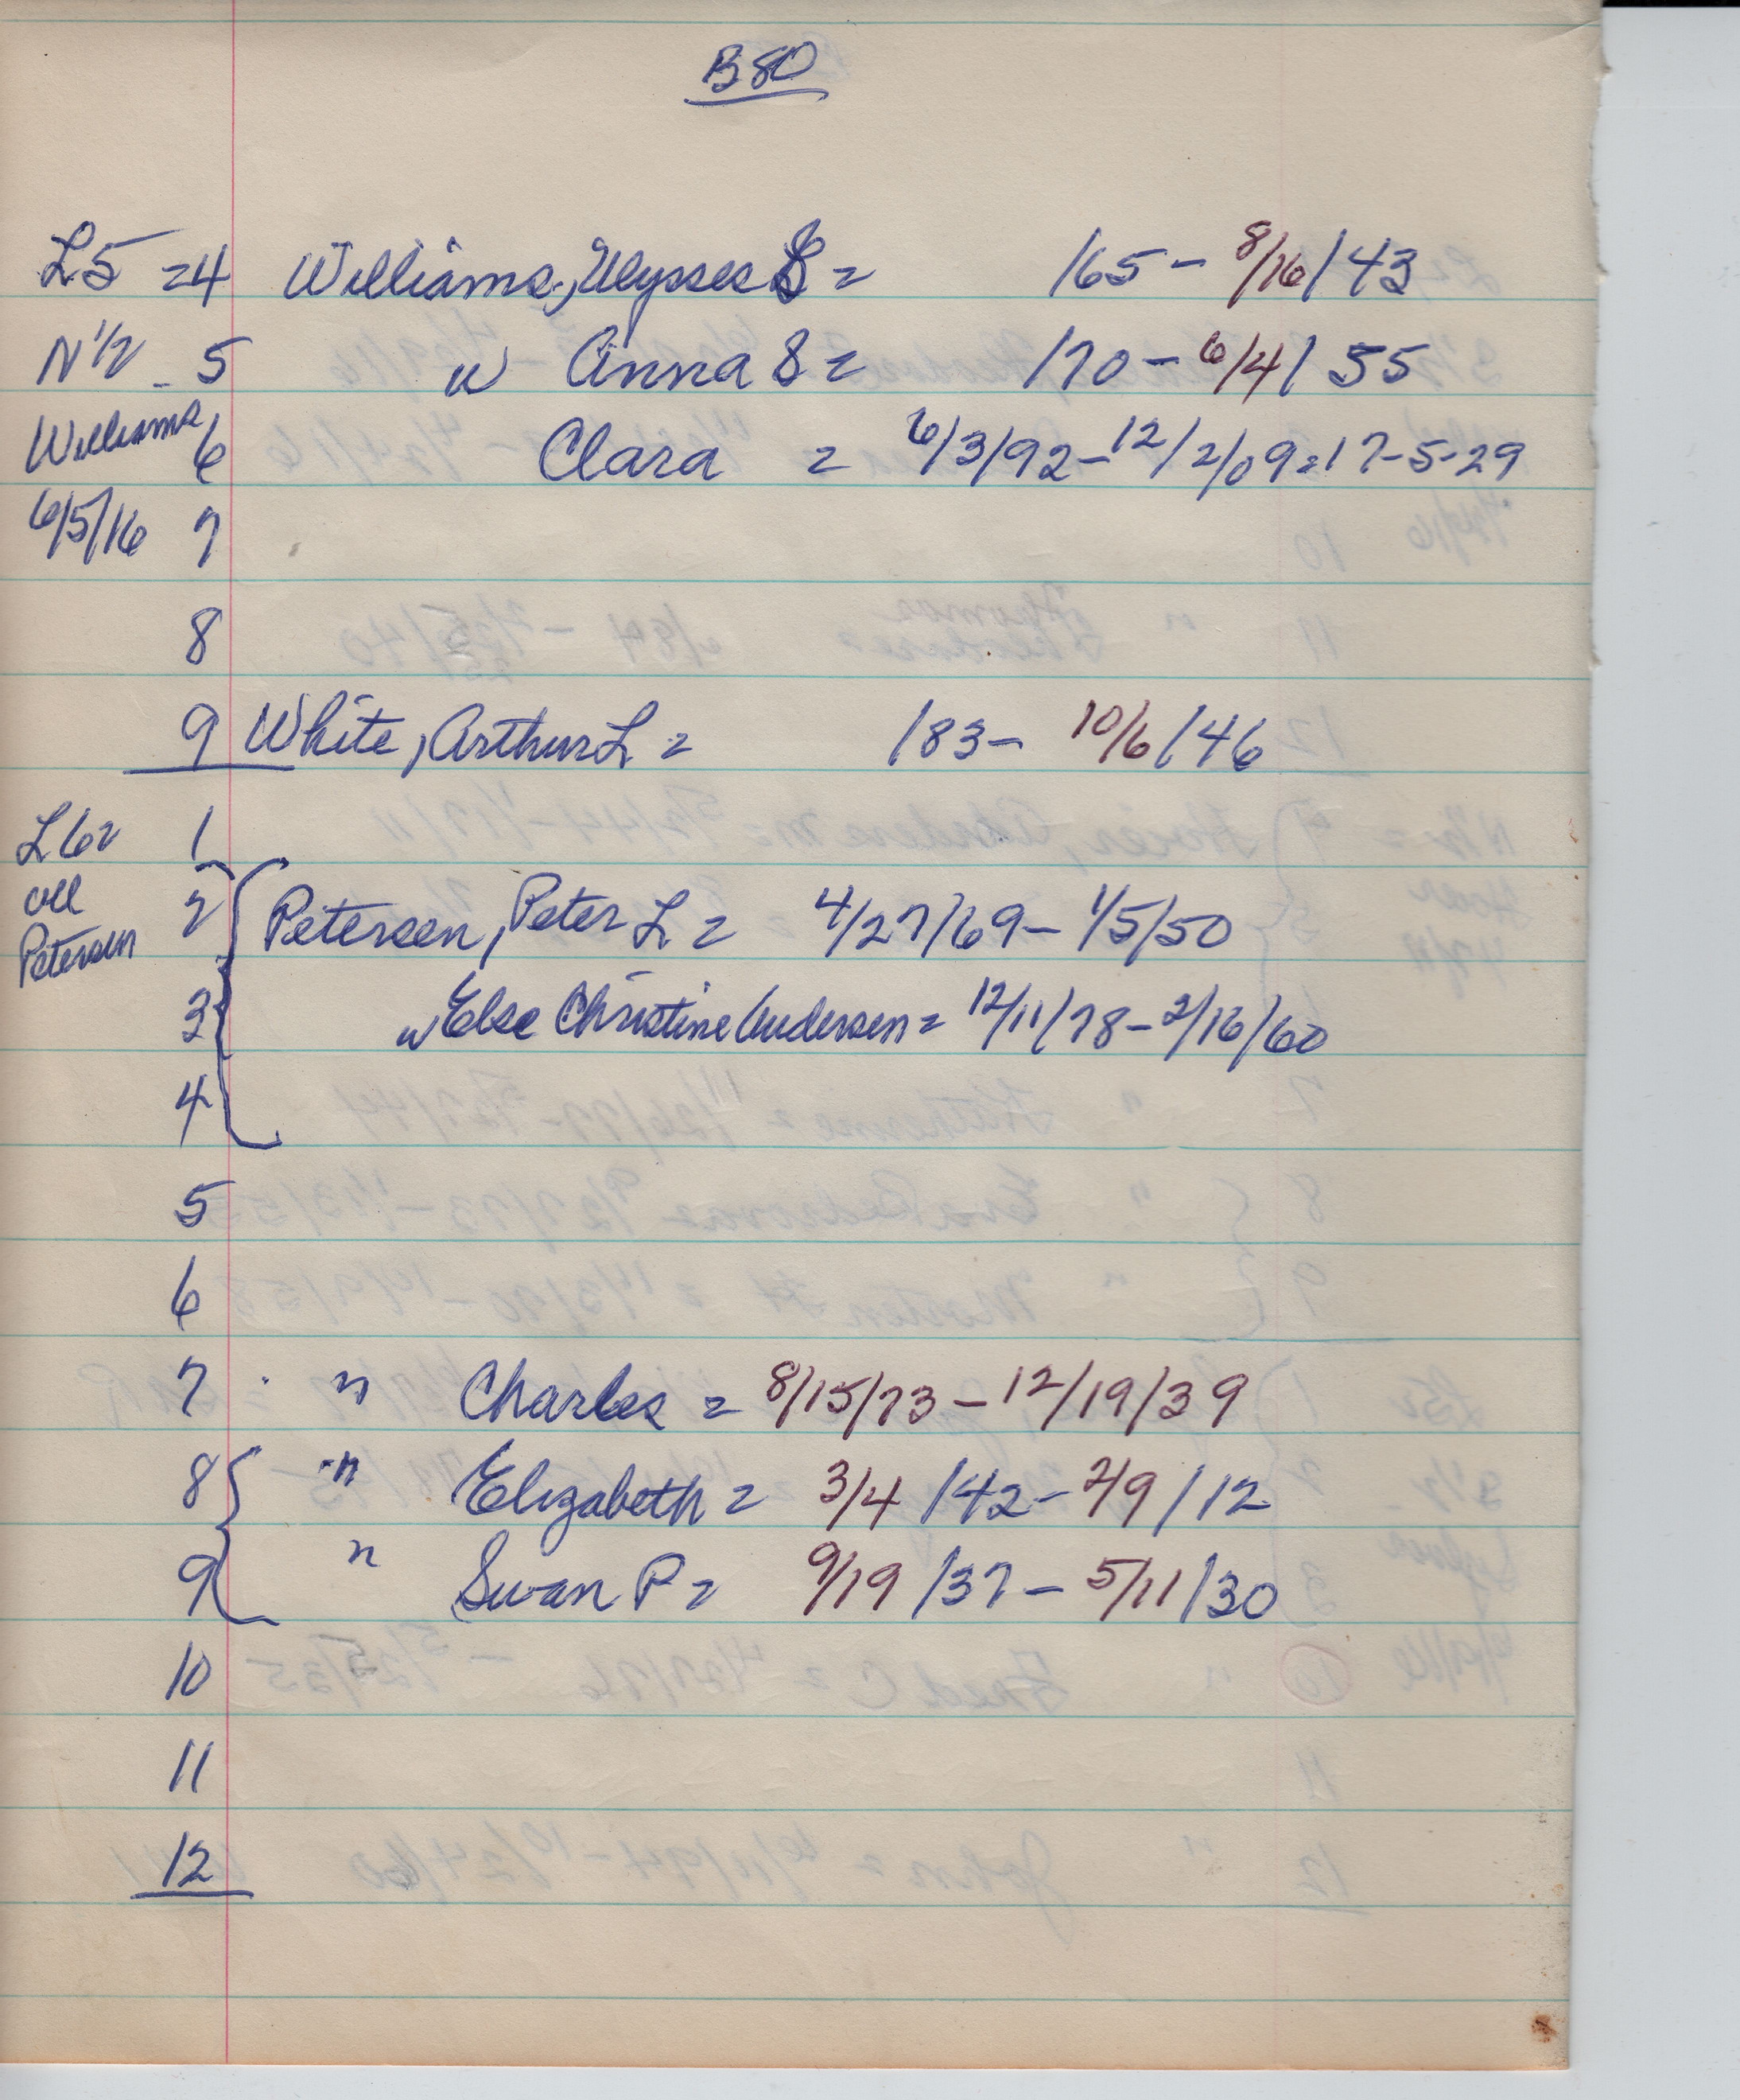 B80
L5 = 4 Williams, Ulysses S = /65 - 8/16/43
N 1/2 - 5 w Anna S = /70 - 6/4/55
Williams 6 Clara = 6/3/92 - 12/2/09 = 17-5-29
6/5/16 7
8
9 White, Arthur L = /83 - 10/6/46
L6= 1
all 2 Petersen, Peter L = 4/27/69 - 1/5/50
Petersen
3 w Else Christine Andersen = 12/11/78 - 2/16/60
4
5
6
7 " Charles = 8/15/73 - 12/19/39
8 " Elizabeth = 3/4/42 - 2/9/12
9 " Swan P = 9/19/37 - 5/11/30
10
11
12